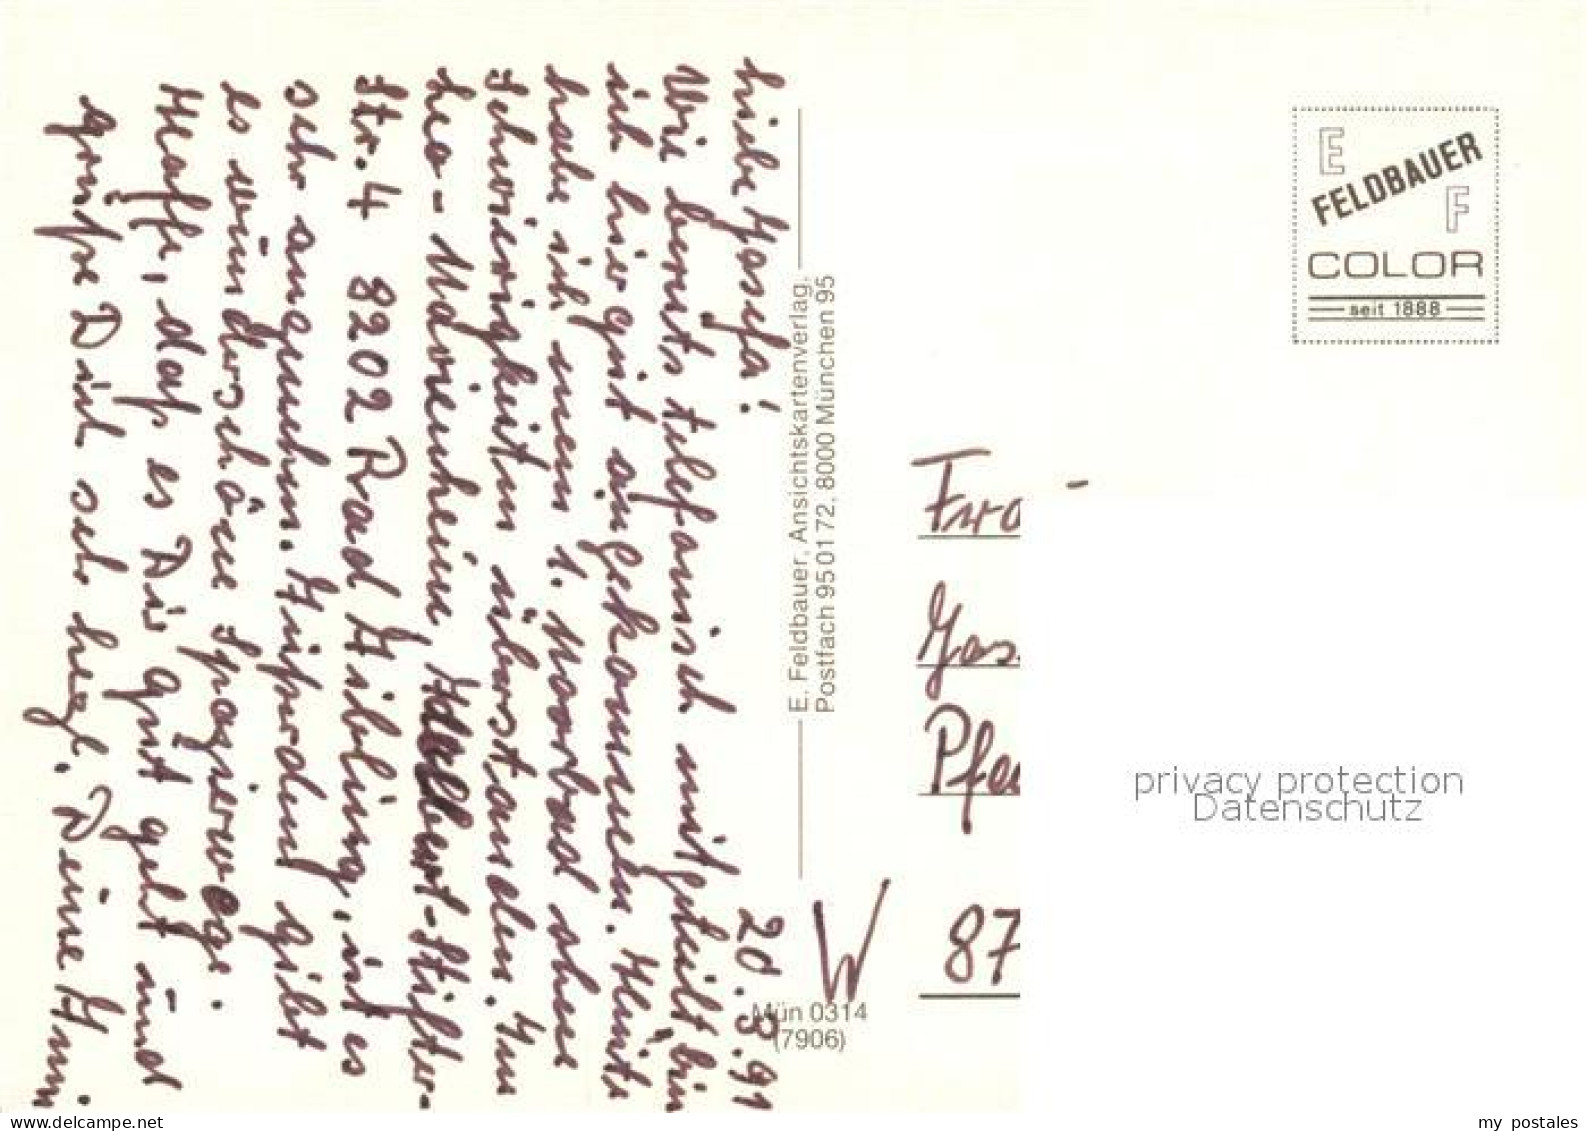 20.3.91
Liebe Josefa!
Wie bereits telefonisch mitgeteilt bin
ich hier gut angekommen. Heute
habe ich mein 1. Moorbad ohne
Schwierigkeiten überstanden. Im
Leo-Marienheim, Halbert-Stifter-
Str. 4 8202 Bad Aibling, ist es
sehr angenehm. Außerdem gibt
es wunderschöne Spazierwege.
Hoffe, daß es Dir gut geht und
grüße Dich sehr herzl. Deine
E. Feldbauer, Ansichtskartenverlag,
Postfach 95 01 72, 8000 München 95
Mün 0314
(7906)
E
FELDBAUER
F
COLOR
seit 1888
W
87
privacy protection
Datenschutz
delcampe.net
my_postales